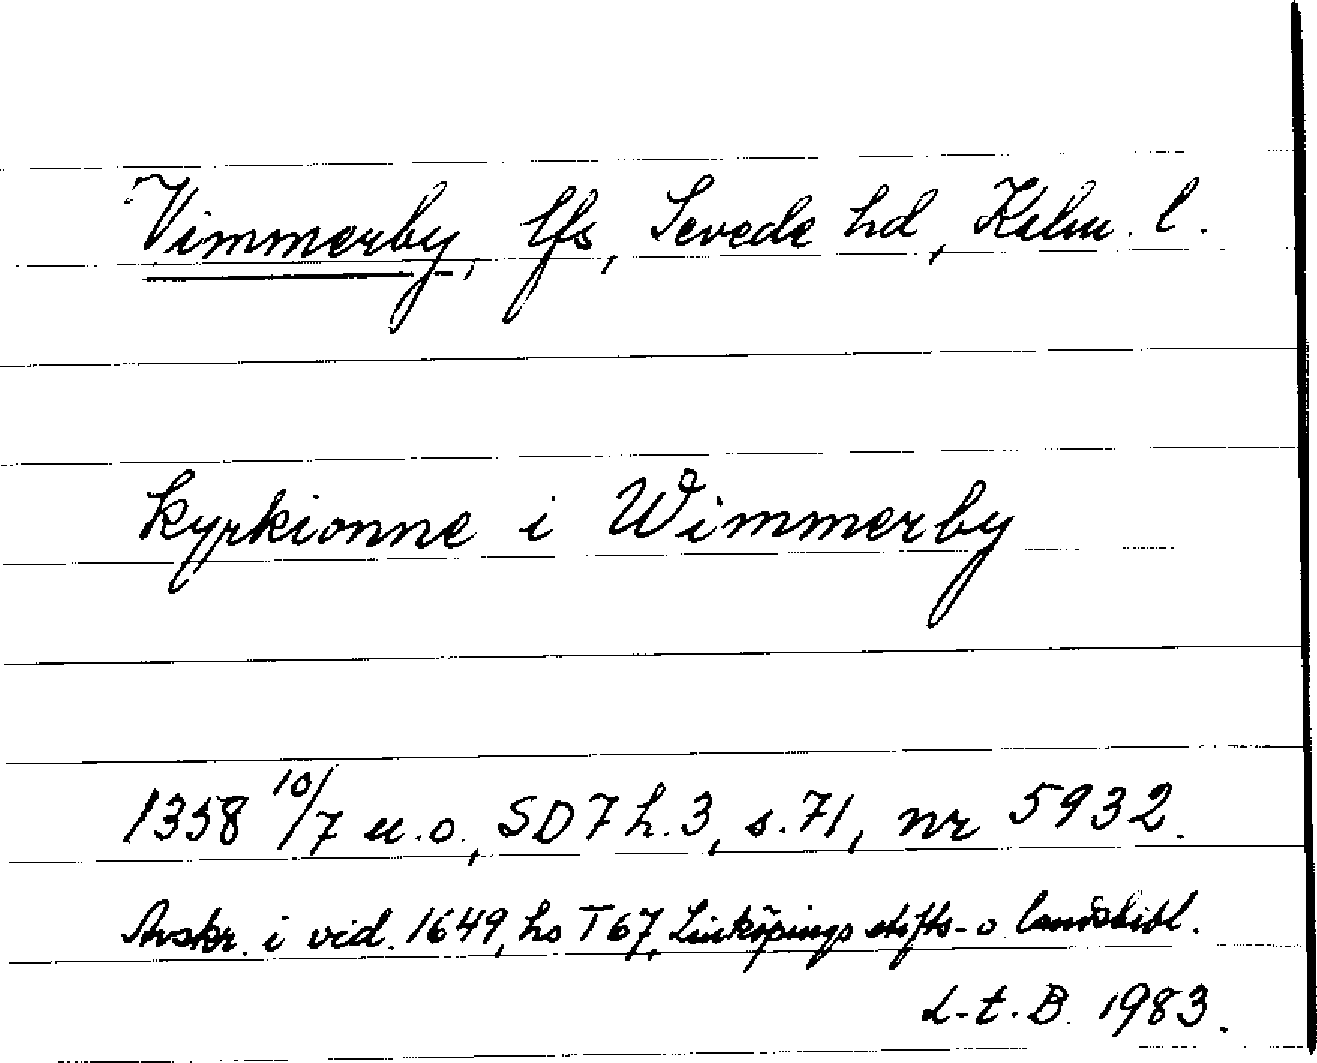 Vimmerby, lfs, Sevede hd, Kalm. l.
kyrkionne i Wimmerby
1358 10/7 u.o., SD 7 h. 3, s. 71, nr 5932.
Avskr. i vid. 1649, hs T 67, Linköpings stifts- o landsbibl.
L-t. B. 1983.